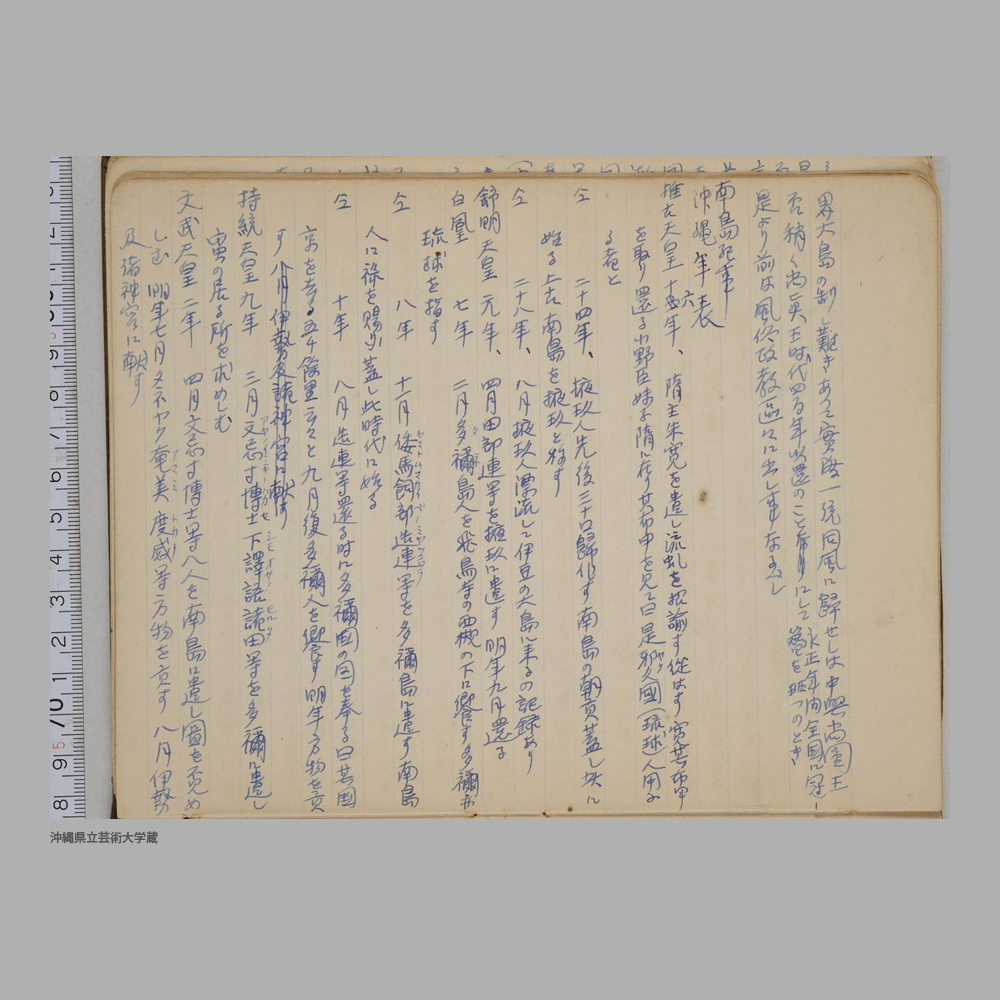 界大島の制し難きあって實際一統同風に歸せしは中興尚圓王
否稍く尚眞王時代四百年以還のことなり而して永正年内全國に冠
簪を班つのとき
是より前は風俗政教區々に出し事なるべし
南島記事
沖縄年表
推古天皇 十六年、 隋主朱寛を遣し流虬を招諭す從はず寛其布甲
を取り還る小野臣妹子隋に在り其布甲を見て曰是邪久國(琉球)人用ふ
る者と
仝 二十四年、 掖玖人先後三十口歸化す南島の朝貢蓋し玆に
始る上古南島を掖玖と称す
仝 二十八年、 八月掖玖人漂流して伊豆の大島に来るの記録あり
舒明天皇 元年、 四月田部連等を掖玖に遣す 明年九月還る
白凰 七年 二月多禰島人を飛鳥寺の西槻の下に饗す多禰亦
琉球を指す
仝 八年 十一月倭馬飼部造連等を多禰島に遣す南島
人に祿を賜ふ蓋し此時代に始る
仝 十年 八月造連等還る時に多禰國の図を奉る曰其国
京を去る五千餘里云々と九月復多禰人を饗す明年方物を貢
す 八月伊勢及諸神宮に献す
持統天皇 九年 三月文忌寸博士下譯語諸田等を多禰に遣し
蛮の居る所を求めしむ
文武天皇 二年 四月文忌寸博士等八人を南島に遣し國を覓め
しむ 明年七月タネヤク奄美 度感等方物を貢す 八月伊勢
及諸神宮に献す
沖縄県立芸術大学蔵